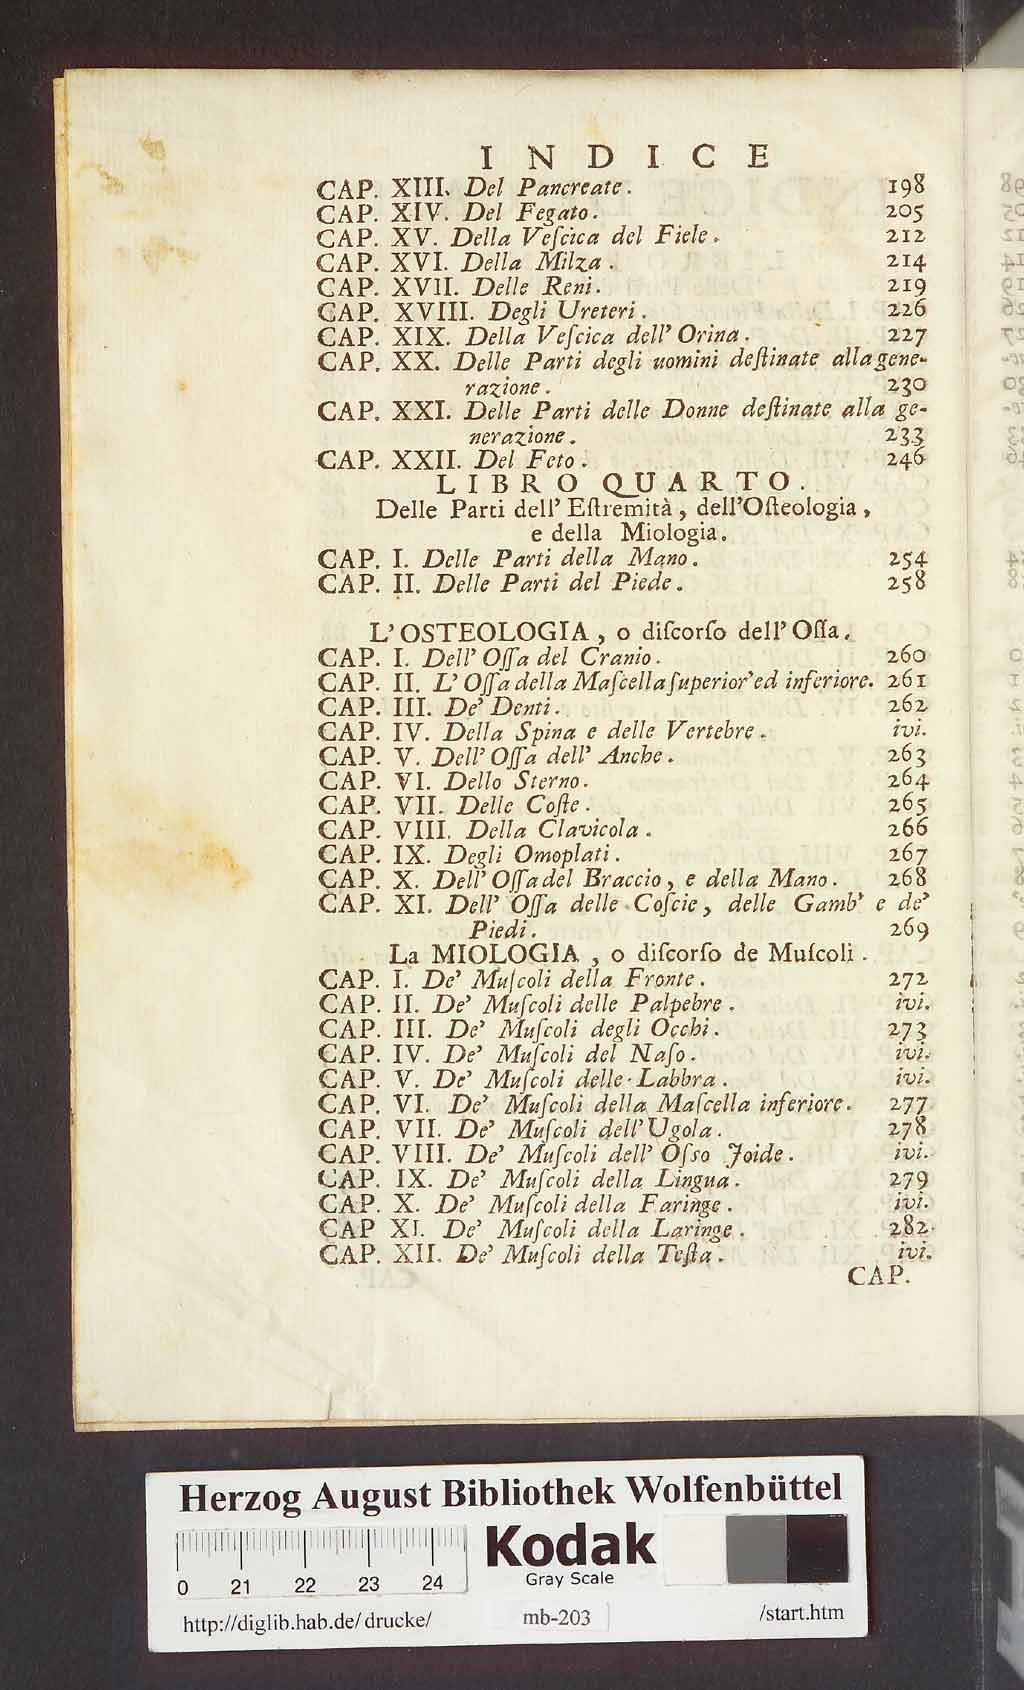 INDICE
CAP. XIII. Del Pancreate. 198
CAP. XIV. Del Fegato. 205
CAP. XV. Della Veſcica del Fiele. 212
CAP. XVI. Della Milza. 214
CAP. XVII. Delle Reni. 219
CAP. XVIII. Degli Ureteri. 226
CAP. XIX. Della Veſcica dell' Orina. 227
CAP. XX. Delle Parti degli uomini deſtinate alla gene-
razione. 230
CAP. XXI. Delle Parti delle Donne deſtinate alla ge-
nerazione. 233
CAP. XXII. Del Feto. 246
LIBRO QUARTO.
Delle Parti dell' Eſtremità, dell'Oſteologia,
e della Miologia.
CAP. I. Delle Parti della Mano. 254
CAP. II. Delle Parti del Piede. 258
L'OSTEOLOGIA, o diſcorſo dell' Oſſa.
CAP. I. Dell' Oſſa del Cranio. 260
CAP. II. L' Oſſa della Maſcella ſuperior' ed inferiore. 261
CAP. III. De' Denti. 262
CAP. IV. Della Spina e delle Vertebre. ivi.
CAP. V. Dell' Oſſa dell' Anche. 263
CAP. VI. Dello Sterno. 264
CAP. VII. Delle Coſte. 265
CAP. VIII. Della Clavicola. 266
CAP. IX. Degli Omoplati. 267
CAP. X. Dell' Oſſa del Braccio, e della Mano. 268
CAP. XI. Dell' Oſſa delle Coſcie, delle Gamb' e de'
Piedi. 269
La MIOLOGIA, o diſcorſo de Muſcoli.
CAP. I. De' Muſcoli della Fronte. 272
CAP. II. De' Muſcoli delle Palpebre. ivi.
CAP. III. De' Muſcoli degli Occhi. 273
CAP. IV. De' Muſcoli del Naſo. ivi.
CAP. V. De' Muſcoli delle Labbra. ivi.
CAP. VI. De' Muſcoli della Maſcella inferiore. 277
CAP. VII. De' Muſcoli dell'Ugola. 278
CAP. VIII. De' Muſcoli dell' Oſſo Joide. ivi.
CAP. IX. De' Muſcoli della Lingua. 279
CAP. X. De' Muſcoli della Faringe. ivi.
CAP XI. De' Muſcoli della Laringe. 282
CAP. XII. De' Muſcoli della Teſta. ivi.
CAP.
Herzog August Bibliothek Wolfenbüttel
Kodak
Gray Scale
0 21 22 23 24
http://diglib.hab.de/drucke/ mb-203 /start.htm